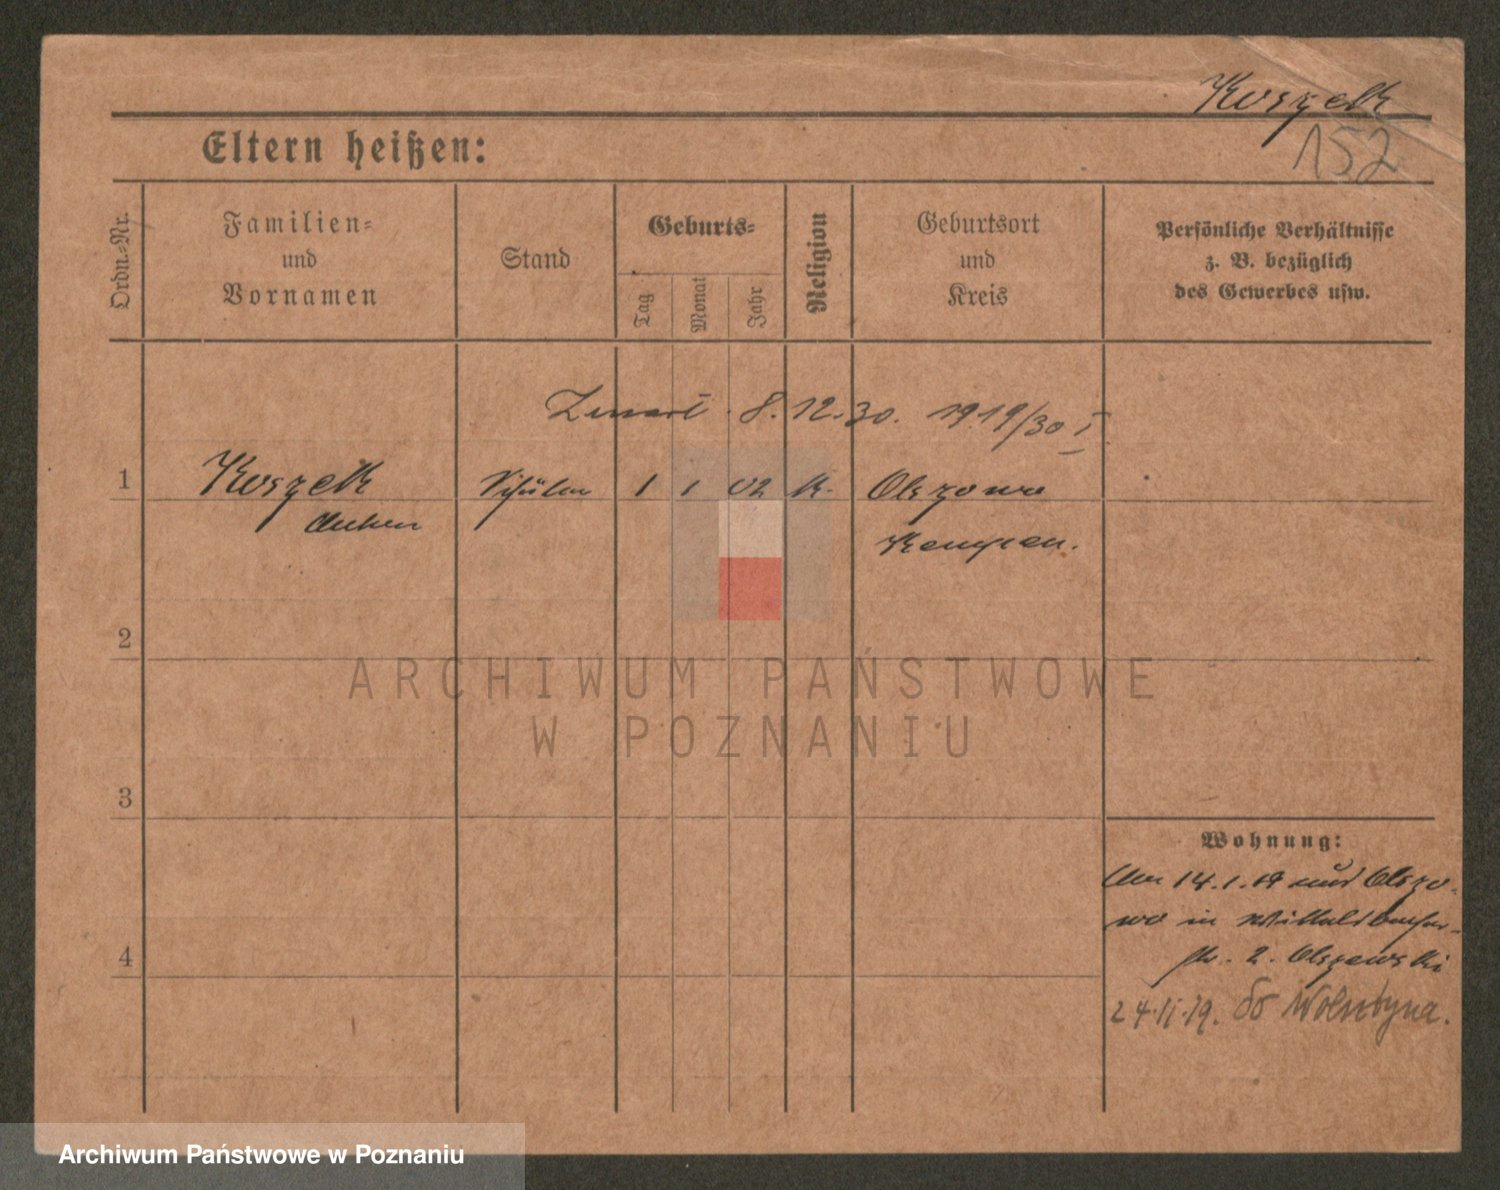 Koszelk
152
Eltern heißen:
Ordn.-Nr.
Familien-
und
Vornamen
Stand
Geburts-
Tag
Monat
Jahr
Religion
Geburtsort
und
Kreis
Persönliche Verhältnisse
z. B. bezüglich
des Gewerbes usw.
Zmarł 8.12.30. 1919/30 I
1 Koszelk Schüler 1 1 02 k. Olszowa
Kempen.
2
3
4
Wohnung:
14.1.19 Olszo-
wo in
2. Olszewski
24.II.19. do Wolsztyna.
ARCHIWUM PAŃSTWOWE
W POZNANIU
Archiwum Państwowe w Poznaniu